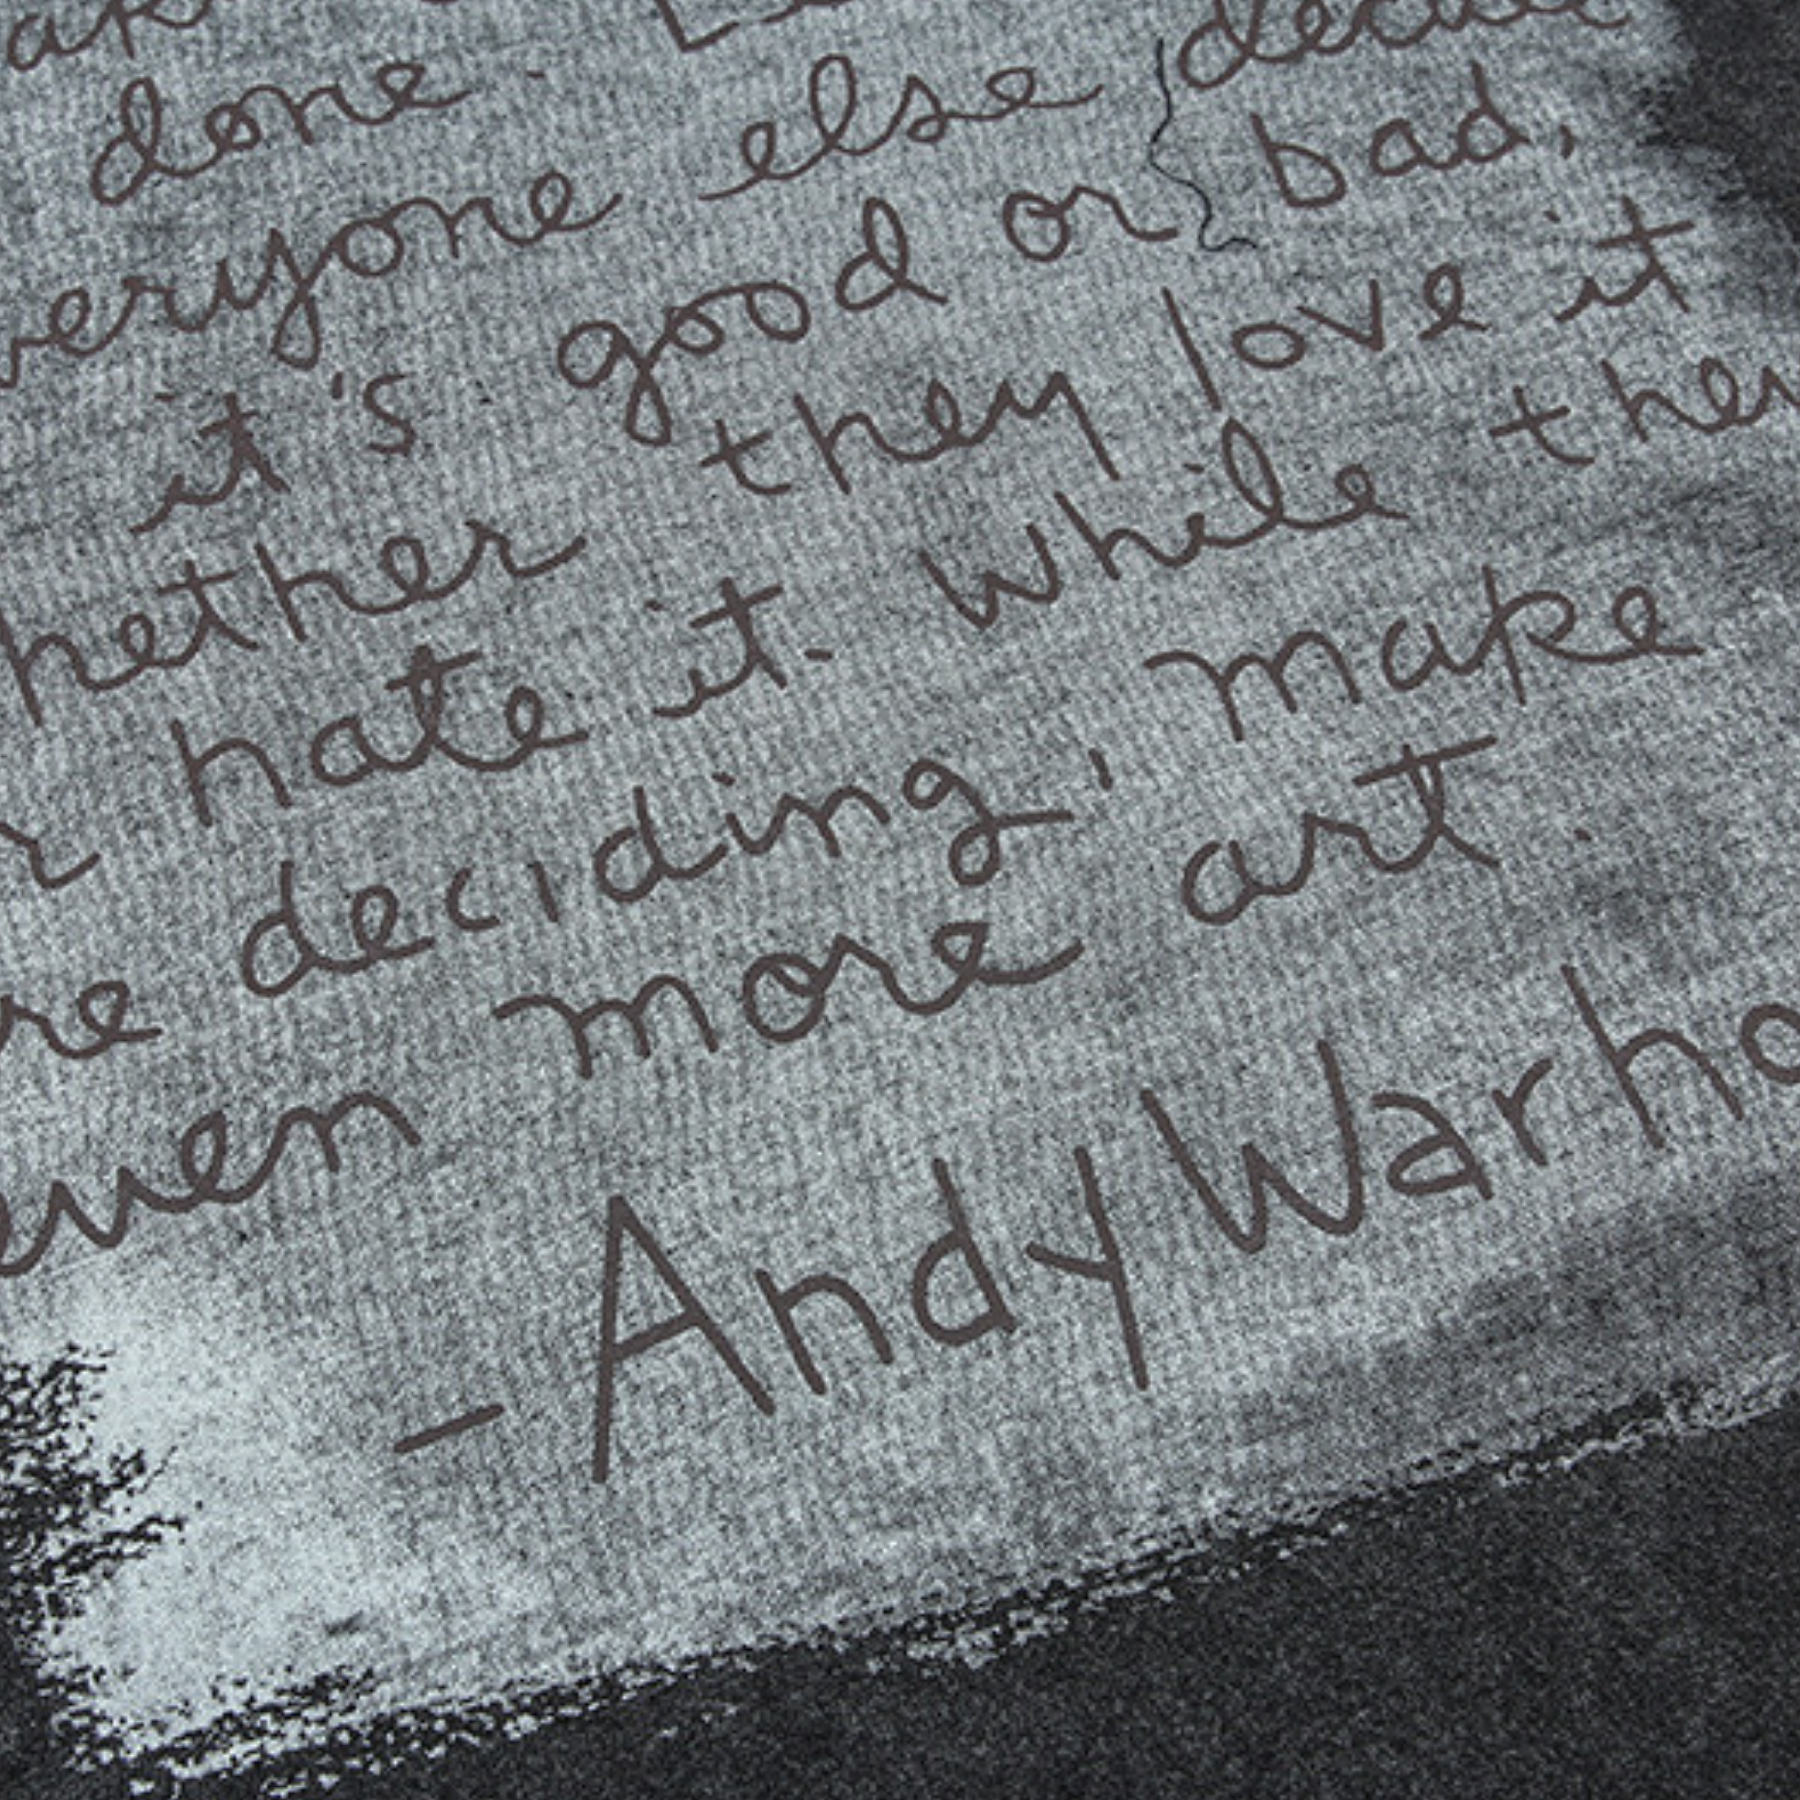 done. Le
veryone else decide
it's good or bad,
hether they love it
r hate it. While they
re deciding, make
even more art.
- Andy Warho